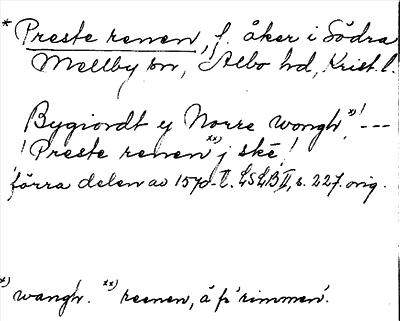 * Preste renen, f. åker i Södra
Mellby sn, Albo hd, Krist. l.
Bygiordt ey Norre wongh x)! ---
! Preste renen xx) j ské !
förra delen av 1570-t. LSLB II, s. 227. orig.
x) wangh. xx) reenen, å pʼ rimmen.